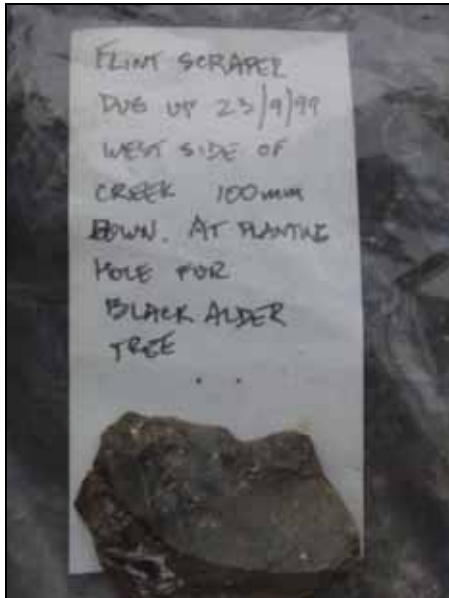 FLINT SCRAPER
DUG UP 23/9/99
WEST SIDE OF
CREEK 100mm
DOWN. AT PLANTING
HOLE FOR
BLACK ALDER
TREE